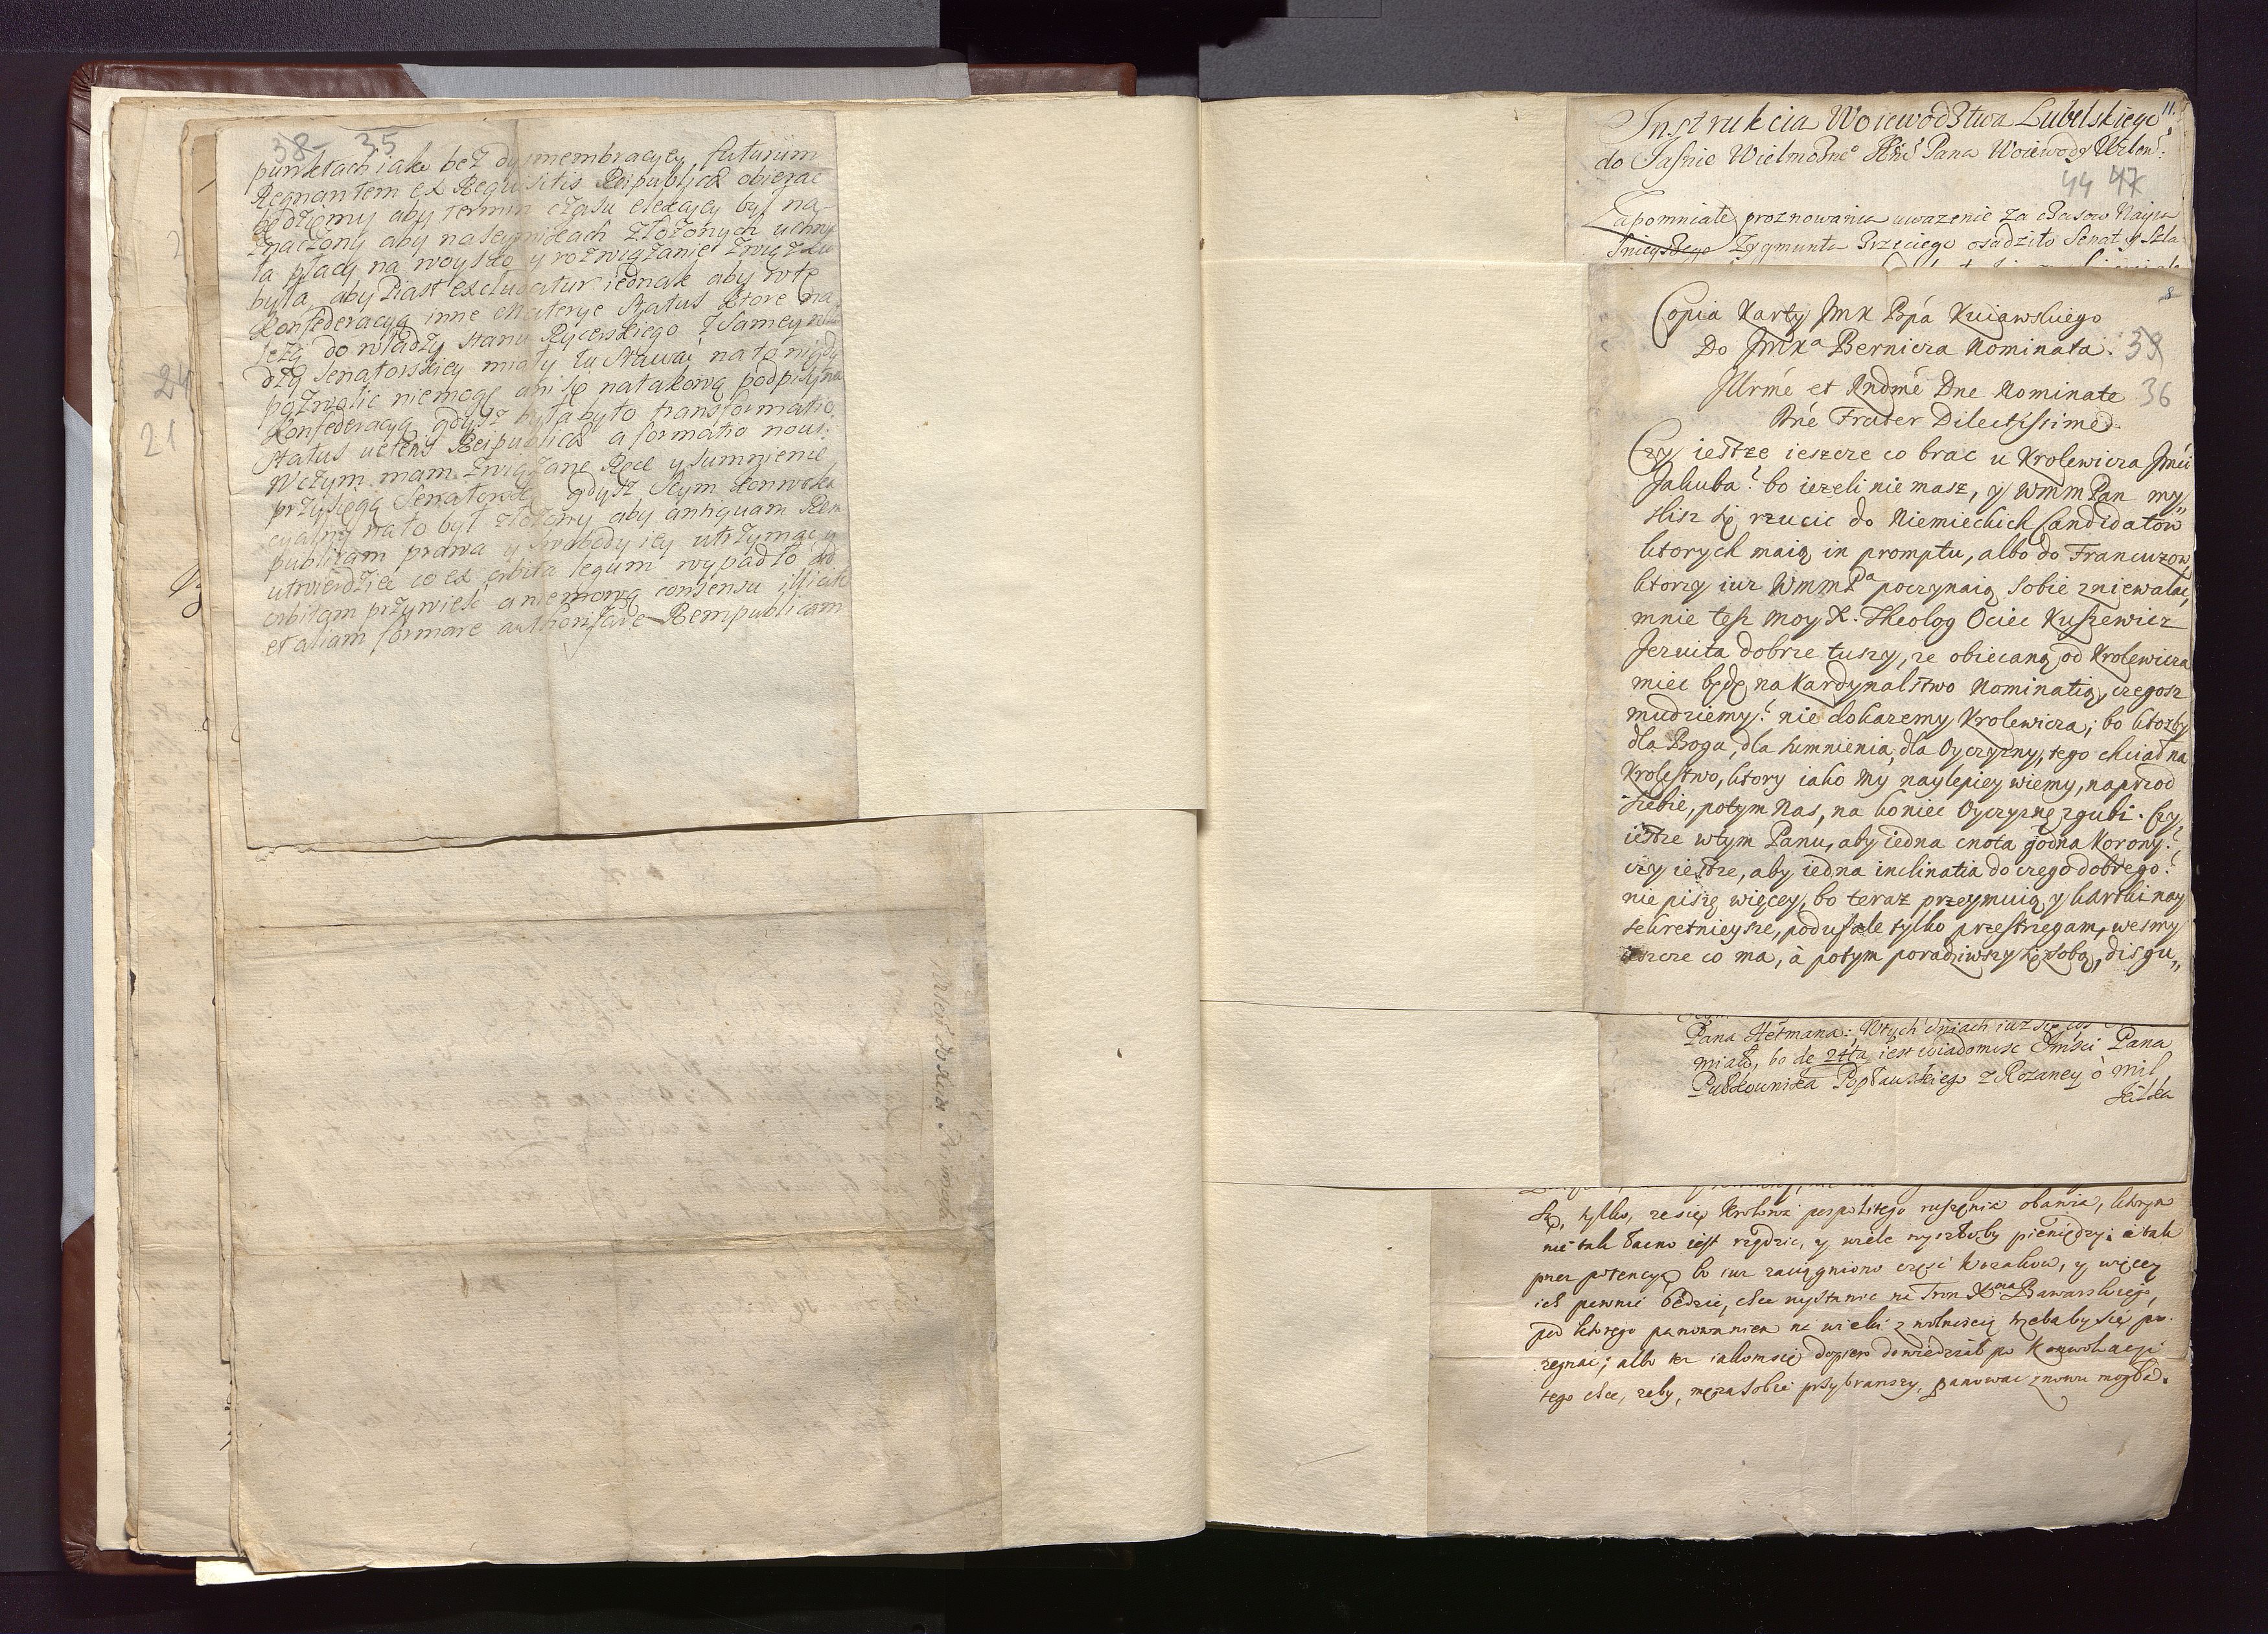 38 35
punktach iako bez dysmembracyey, futurum
Regnantem ex Requisitis Reipublicæ obierac
będziemy aby termin czasu elekcyey był na-
znaczony aby na Seymikach złożonych uchwa
ła płacy na woysko y rozwiązanie związku
była, aby Piast excludatur iednak aby w tę
Konfederacyą inne materye Status ktore na
leżą do władzy stanu Rycerskiego z samey wła
dzą Senatorskiey miały tu stawać na to nigdy
pozwolic niemogę ani się na takową podpisuię
Konfederacyą gdysz była było transformatio
Status veteris Reipublicæ a formatio noui.
W czym mam związane Ręce y sumnienie
przysięgą Senatorską gdysz Seym konwoka
cyalny na to był złożony aby antiquam Rem
publicam prawa y swobody iey utrzymać y
utwierdzic co ex orbita legum wypadło ad
orbitam przywieść a niemogą consensu
et aliam formare authorisare Rempublicam
24
21
Instrukcia Woiewodztwa Lubelskiego 11.
do Jaśnie Wielmożne° Pana Woiewody Wilen:
44 47
Zapomniałe proznowania uwazenie za czasow Nayia
śnieyszego Zygmunta Trzeciego osadziło Senat y Szla
8
Copia Karty JmX Bpá Kuiawskiego
Do JmXᵃ Berniera Nominata. 39
Illrmé et Rndmé Dne Nominate 36
Dné Frater Dilectissime.
Czy iestze ieszcze co brac u Krolewicza Jmći
Jakuba? bo iezeli nie masz, y WmmPan my„
slisz się rzucic do Niemieckich Candidatow
ktorych maią in promptu, albo do Francuzow,
ktorzy iuz WmmPᵃ poczynaią sobie zniewalac,
mnie tesz moy X. Theolog Ociec Kuszewicz
Jezuita dobrze tuszy, ze obiecaną od Krolewicza
miec będę na Kardynalstwo Nominatią, czegosz
mudziemy? nie dokazemy Krolewicza; bo ktozby
dla Boga, dla sumnienia, dla Oyczyzny, tego chciał na
Krolestwo, ktory iako my naylepiey wiemy, naprzod
siebie, potym Nas, na koniec Oyczyznę zgubi. Czy
iestze w tym Panu, aby iedna cnota godna Korony?
czy iestze, aby iedna inclinatia do czego dobrego?
nie piszę więcey, bo teraz przeymuią y kartki nay
sekretnieysze, poduśale tylko przestrzegam, weśmy
ieszcze co ma, à potym poradziwszy się z sobą, disgu„
Pana Hetmana: Wtych dniach iuz się cos
miało, bo de 24ta iest wiadomosc Jmsći Pana
Pułkownika Popławskiego z Rozaney o mil
kilka
się, tylko, ze się Krolowa pospolitego ruszenia obawia, ktorym
nie tak łacno iest rządzic, y wiele wyszłoby pieniędzy: a tak
przez potencyą bo iuz zaciągniono częsc Kozakow, y więcey
ich pewnie będzie, chce wystawic na Tron Xᶜⁱᵃ Bawarskiego,
pod ktorego panowaniem na wieki z wolnością trzeba by się po-
zegnac; albo tez iakom się dopiero dowiedział po Konwokacyi
tego chce, zeby, męza sobie przybrawszy, panowac znowu mogła.